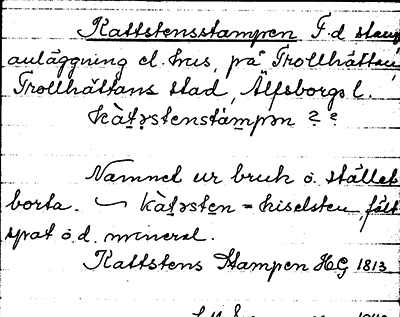 Kattstensstampen F.d. stamp
anläggning el. hus, på Trollhättan,
Trollhättans stad, Älfsborgs l.
kàt̯ə̯stenstámpən ? ?
Namnet ur bruk o. stället
borta. ~ kàt̯əsten = kiselsten, fält
spat o.d. mineral.
Kattstens Stampen HG 1813